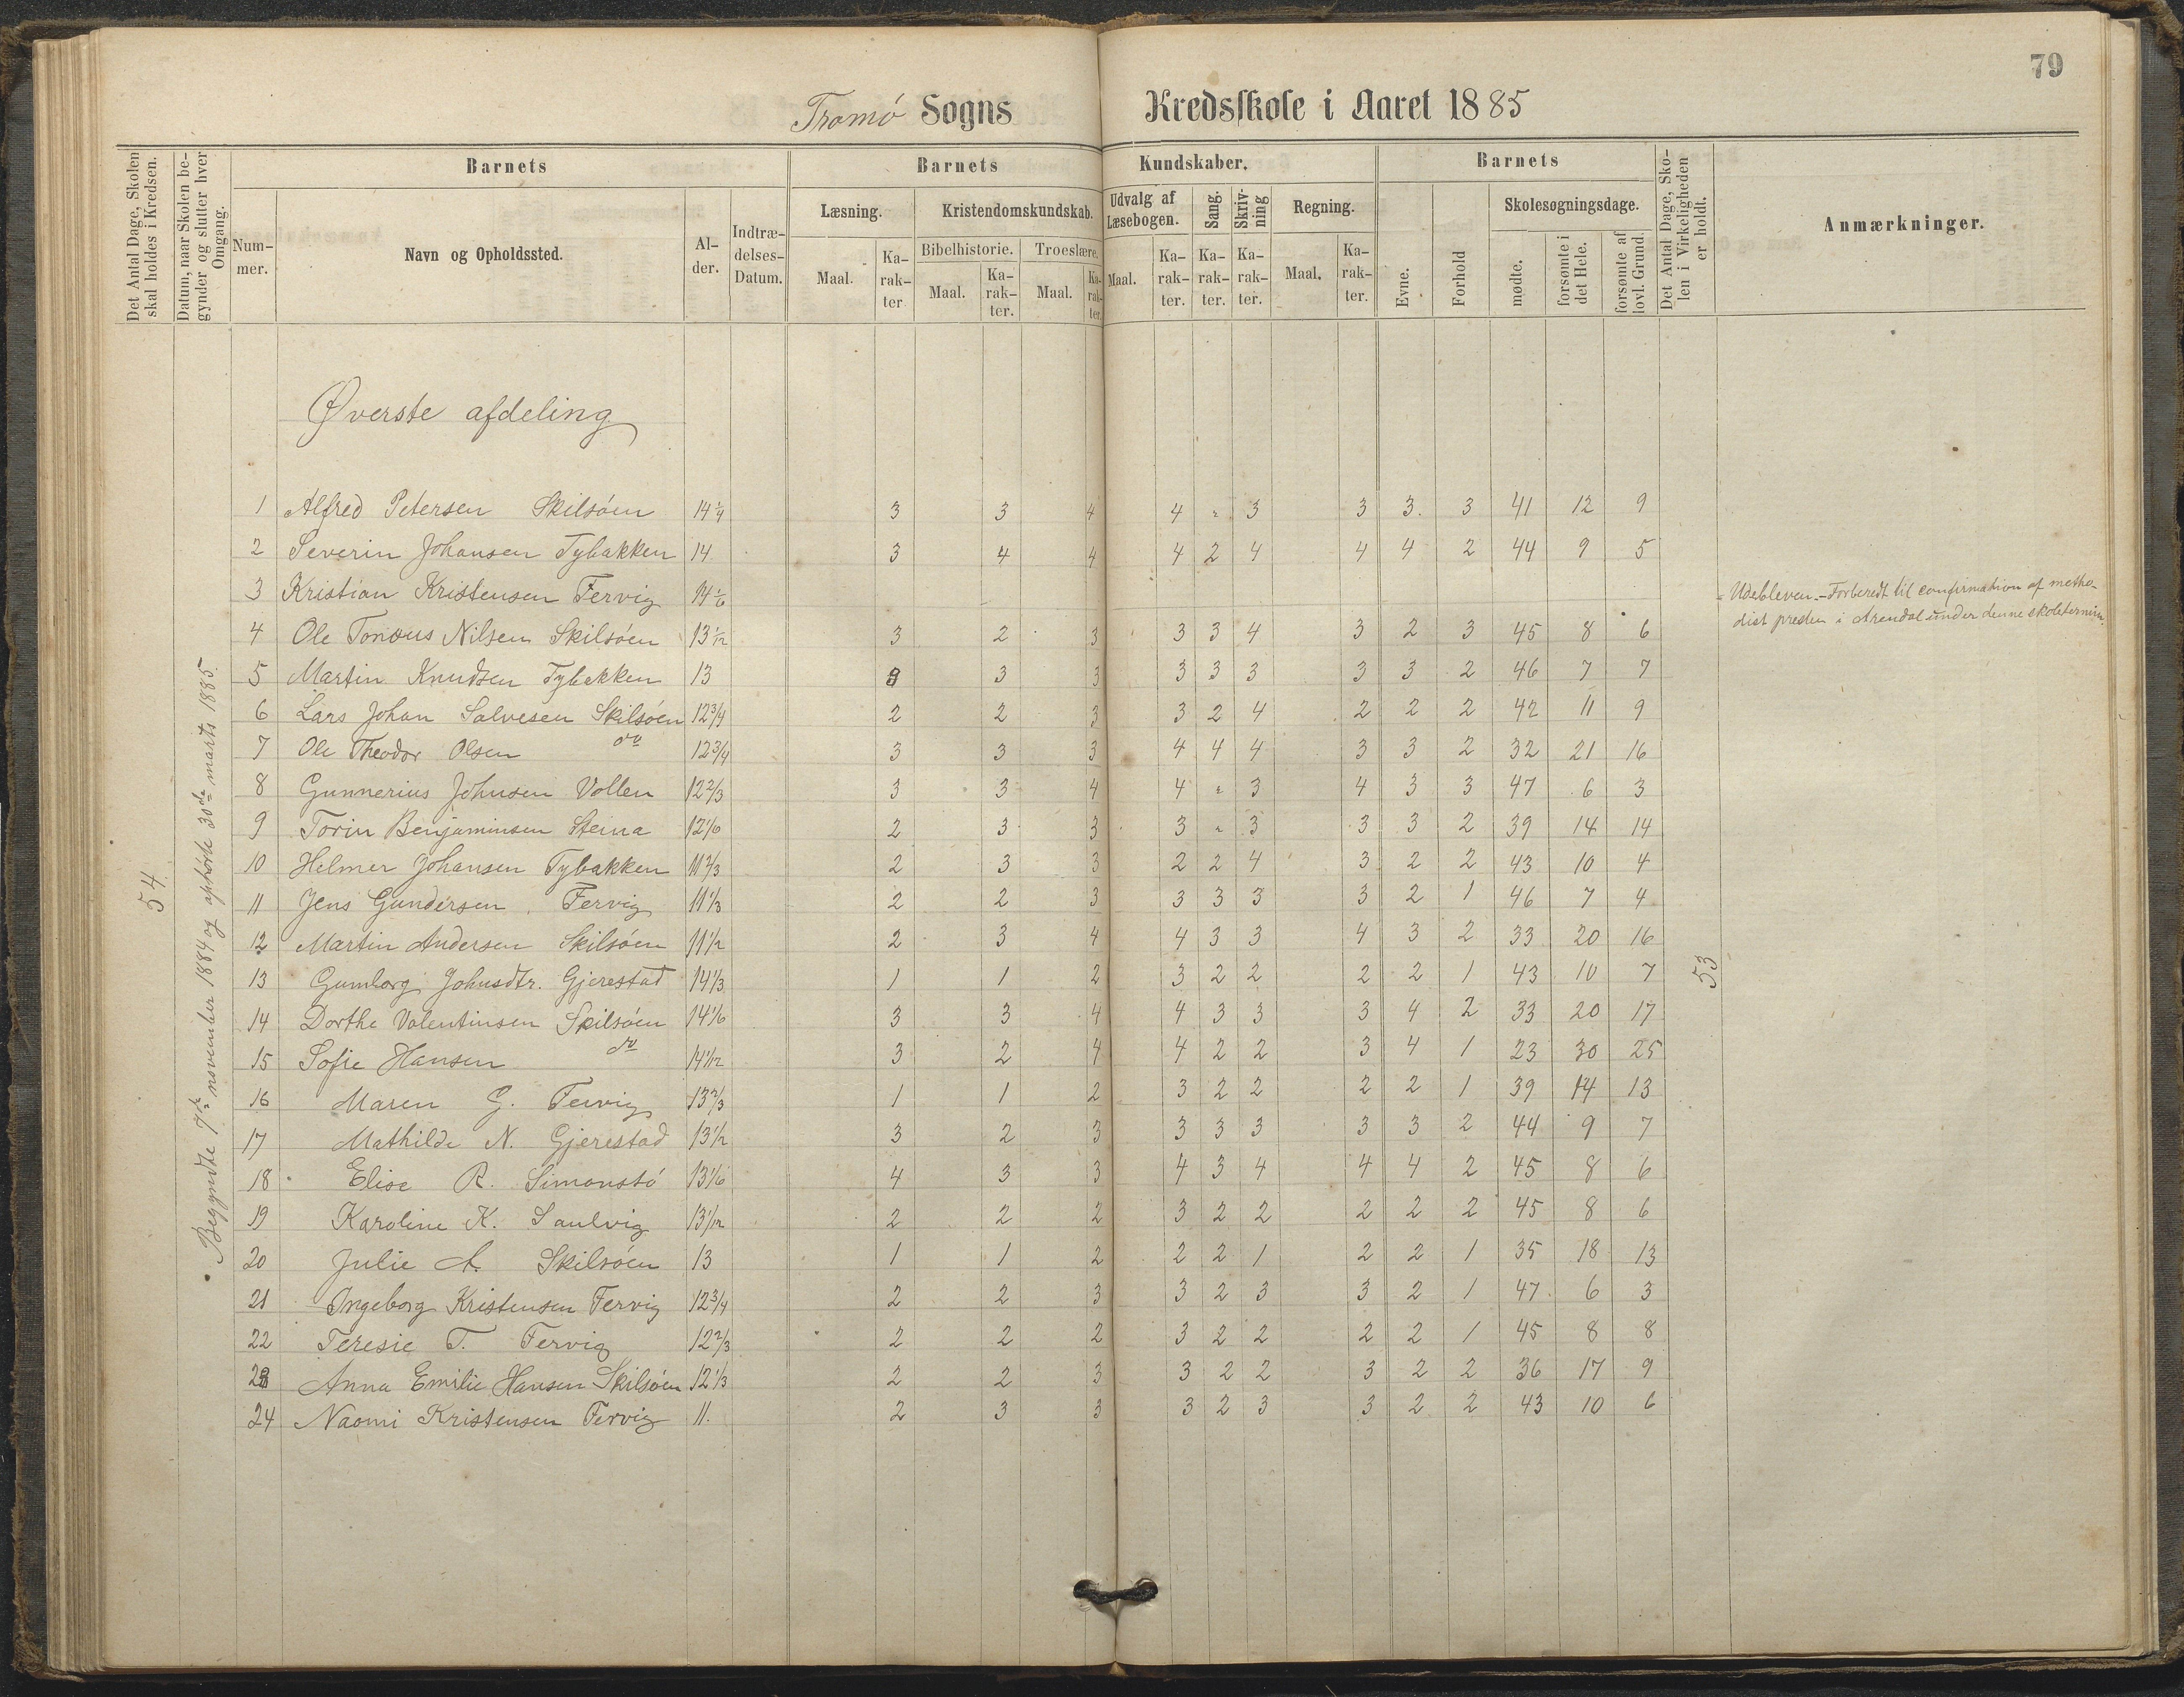 79
Tromö Sogns Kredsskole i Aaret 1885
Det Antal Dage, Skolen skal holdes i Kredsen.
Datum, naar Skolen begynder og slutter hver Omgang.
Barnets
Barnets Kundskaber.
Barnets
Det Antal Dage, Skolen i Virkeligheden er holdt.
Anmærkninger.
Nummer.
Navn og Opholdssted.
Alder.
Indtrædelses-Datum.
Læsning.
Kristendomskundskab.
Udvalg af Læsebogen.
Sang.
Skrivning
Regning.
Evne.
Forhold
Skolesøgningsdage.
Bibelhistorie.
Troeslære.
Maal.
Karakter
Maal.
Karakter.
Maal.
Karakter.
Maal.
Karakter.
Karakter.
Karakter.
Maal.
Karakter.
mødte.
forsømte i det Hele.
forsømte af lovl. Grund.
54
Begyndte 7de november 1884 og ophørte 30de marts 1885.
Øverste afdeling
1 Alfred Petersen Skilsöen 14 1/4 3 3 4 4 " 3 3 3. 3 41 12 9
2 Severin Johansen Tybakken 14 3 4 4 4 2 4 4 4 2 44 9 5
3 Kristian Kristensen Fervig 14 1/6 = Udebleven. - Forberedt til confirmation af metho-
dist presten i Arendal under denne skoletermin.
4 Ole Tonæus Nilsen Skilsöen 13 1/12 3 2 3 3 3 4 3 2 3 45 8 6
5 Martin Knudsen Tybakken 13 3 3 3 3 3 3 3 3 2 46 7 7
6 Lars Johan Salvesen Skilsöen 12 3/4 2 2 3 3 2 4 2 2 2 42 11 9
7 Ole Theodor Olsen do 12 3/4 3 3 3 4 4 4 3 3 2 32 21 16
8 Gunnerius Johnsen Vollen 12 2/3 3 3 4 4 " 3 4 3 3 47 6 3
9 Torin Benjaminsen Steina 12 1/6 2 3 3 3 " 3 3 3 2 39 14 14
10 Helmer Johansen Tybakken 11 2/3 2 3 3 2 2 4 3 2 2 43 10 4
11 Jens Gundersen Fervig 11 1/3 2 2 3 3 3 3 3 2 1 46 7 4
12 Martin Andersen Skilsöen 11 1/2 2 3 4 4 3 3 4 3 2 33 20 16
13 Gumborg Johnsdtr. Gjerestad 14 1/3 1 1 2 3 2 2 2 2 1 43 10 7
53
14 Dorthe Valentinsen Skilsöen 14 1/6 3 3 4 4 3 3 3 4 2 33 20 17
15 Sofie Hansen do 14 1/12 3 2 4 4 2 2 3 4 1 23 30 25
16 Maren G. Fervig 13 2/3 1 1 2 3 2 2 2 2 1 39 14 13
17 Mathilde N. Gjerestad 13 1/2 3 2 3 3 3 3 3 3 2 44 9 7
18 Elise R. Simonstö 13 1/6 4 3 3 4 3 4 4 4 2 45 8 6
19 Karoline K. Saulvig 13 1/12 2 2 2 3 2 2 2 2 2 45 8 6
20 Julie A. Skilsöen 13 1 1 2 2 2 1 2 2 1 35 18 13
21 Ingeborg Kristensen Fervig 12 3/4 2 2 3 3 2 3 3 2 1 47 6 3
22 Teresie T. Fervig 12 2/3 2 2 2 3 2 2 2 2 1 45 8 8
23 Anna Emilie Hansen Skilsöen 12 1/3 2 2 3 3 2 2 3 2 2 36 17 9
24 Naomi Kristensen Fervig 11. 2 3 3 3 2 3 3 2 2 43 10 6